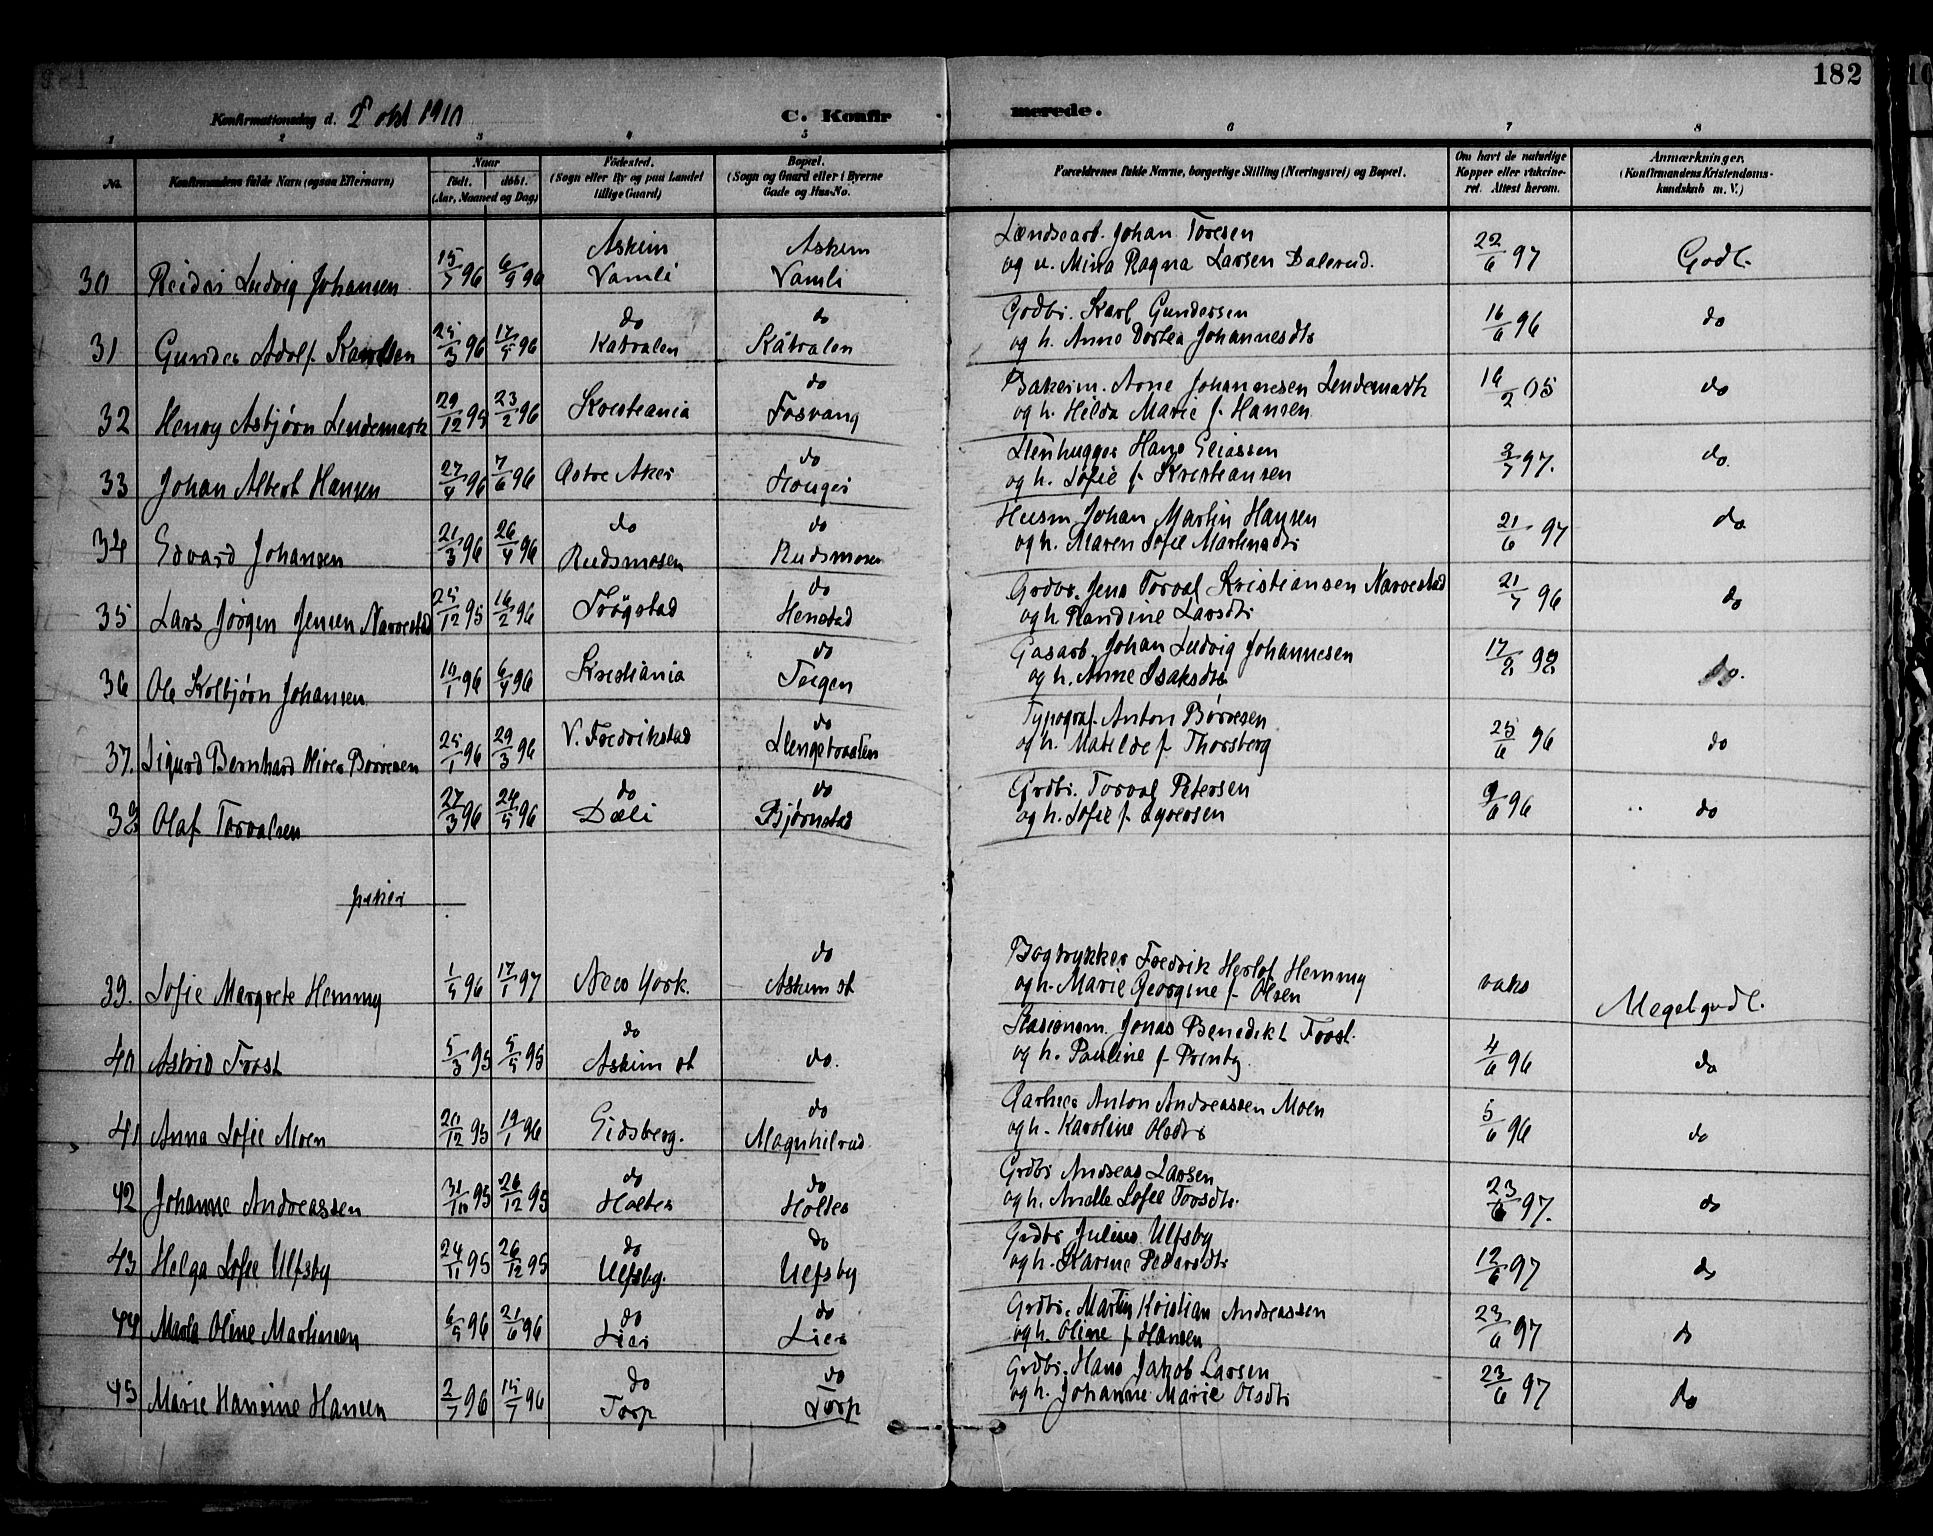 182
Konfirmationsdag d. 2 okt 1910
C. Konfirmerede.
1 2 3 4 5 6 7 8
No.
Konfirmandens fulde Navn (ogsaa Efternavn)
Naar
født. døbt.
(Aar, Maaned og Dag)
Fødested.
(Sogn eller By og paa Landet
tillige Gaard)
Bopæl.
(Sogn og Gaard eller i Byerne
Gade og Hus-No.
Forældrenes fulde Navne, borgerlige Stilling (Næringsvei) og Bopæl.
Om havt de naturlige
Kopper eller vakcine-
ret. Attest herom.
Anmærkninger.
(Konfirmandens Kristendoms-
kundskab m. V.)
30 Reidar Ludvig Johansen 15/7 96 6/9 96 Askim Vamli Askim Vamli
Johan Toresen
og u. Mina Ragna Larsen Dalerud. 22/6 97 Godt.
31 Gunder Adolf Karlsen 25/3 96 17/5 96 do Katralen do Kåtralen
Grdbr. Karl Gundersen
og h. Anne Dortea Johannesdtr 16/6 96 do
32 Henry Asbjørn Lendemark 29/12 95 23/2 96 Kristiania do Fosvang
Arne Johannesen Lendemark
og h. Hilda Marie f. Hansen 16/2 05 do
33 Johan Albert Hansen 27/4 96 7/6 96 Østre Aker do Houger
Stenhugger Hans Eliassen
og h. Sofie f. Kristiansen 3/7 97. do.
34 Edvard Johansen 21/3 96 26/4 96 do Rudsmosen do Rudsmosen
Husm Johan Martin Hansen
og h. Maren Sofie Martinsdtr 21/6 97 do
35 Lars Jørgen Jensen Narvestad 25/12 95 16/2 96 Trøgstad do Henstad
Grdbr. Jens Torval Kristiansen Narvestad
og h. Randine Larsdtr 21/7 96 do
36 Ole Kolbjørn Johansen 10/1 96 6/4 96 Kristiania do Teigen
Gasarb. Johan Ludvig Johannesen
og h. Anne Isaksdtr 17/2 98 do.
37. Sigurd Bernhard Oliver Børresen 25/1 96 29/3 96 V. Fredrikstad do
Typograf. Anton Børresen
og h. Matilde f. Thorsberg 25/6 96 do
38 Olaf Torvalsen 27/3 96 24/5 96 do Dæli do Bjørnstad
Grdbr. Torval Petersen
og h. Sofie f. Syversen 9/6 96 do
piker
39. Sofie Margrete Hemmy 1/5 96 17/1 97 New York. do Askim st
Bogtrykker Fredrik Herlof Hemmy
og h. Marie Georgine f. Olsen vaks Meget godt.
40 Astrid Frost 5/3 95 5/5 95 do Askim st do.
Stasionsm. Jonas Benedikt Frost.
og h. Pauline f. Prenby. 4/6 96 do
41 Anna Sofie Moen 20/12 95 19/1 96 Eidsberg. do Magnhilrud
Anton Andreassen Moen
og h. Karoline Olsdtr 5/6 96 do
42 Johanne Andreassen 31/10 95 26/12 95 do Holter do Holter
Grdbr Andreas Larsen
og h. Anette Sofie Torsdtr. 23/6 97. do
43 Helga Sofie Ulfsby 24/11 95 26/12 95 do Ulfsby. do Ulfsby
Grdbr Julius Ulfsby
og h. Karine Pedersdtr 12/6 97 do
44 Marta Oline Martinsen 6/5 96 21/6 96 do Lier do Lier
Grdbr. Martin Kristian Andreassen
og h. Oline f. Hansen 23/6 97 do
45 Marie Hansine Hansen 2/7 96 15/7 96 do Torp do Torp
Grdbr. Hans Jakob Larsen
og h. Johanne Marie Olsdtr 23/6 97 do